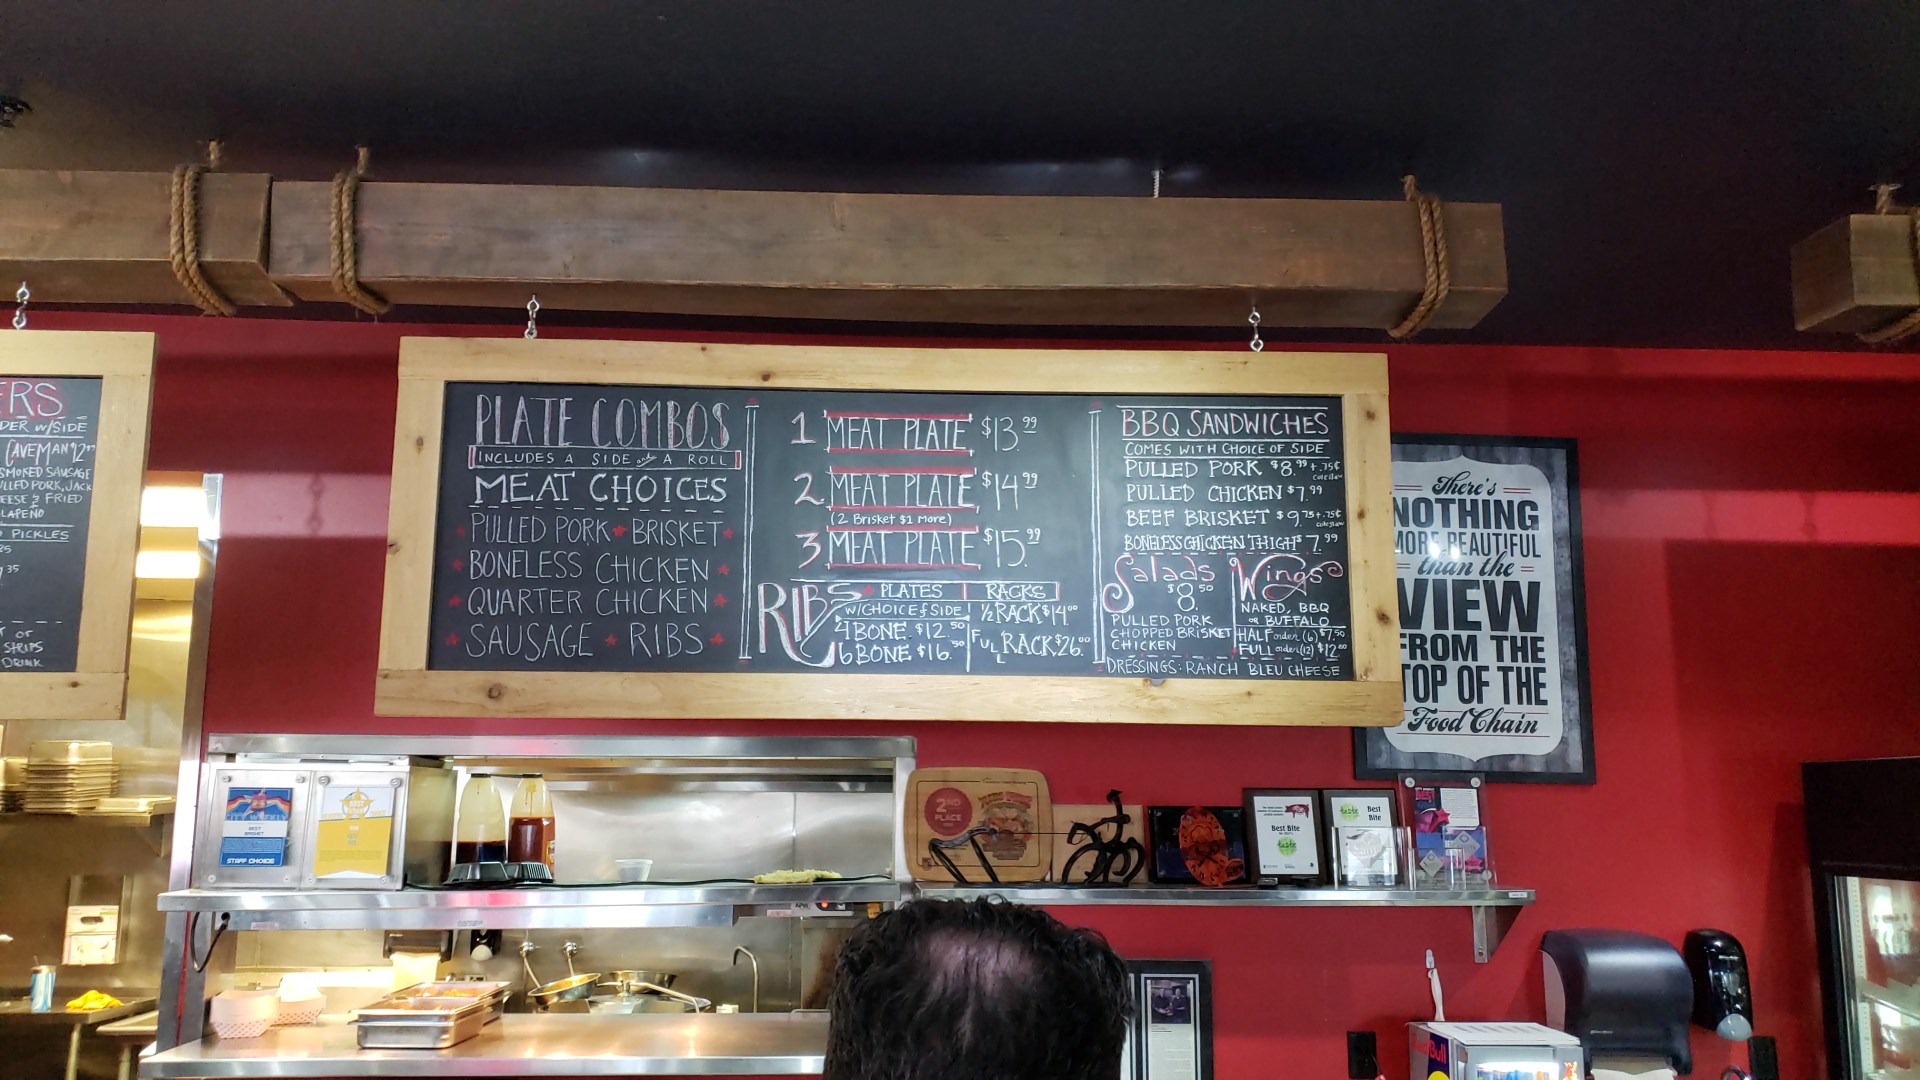 ERS
DER W/SIDE
CAVEMAN $12
SMOKED SAUSAGE
PULLED PORK, JACK
& FRIED
PICKLES
OR
STRIPS
DRINK
PLATE COMBOS
INCLUDES A SIDE and A ROLL
MEAT CHOICES
PULLED PORK BRISKET
BONELESS CHICKEN
QUARTER CHICKEN
SAUSAGE RIBS
1 MEAT PLATE $13.99
2 MEAT PLATE $14.99
(2 Brisket $1 More)
3 MEAT PLATE $15.99
RIBS PLATES RACKS
W/CHOICE of SIDE
4 BONE. $12.50
6 BONE $16.50
1/2 RACK $14.00
FULL RACK $26.00
BBQ SANDWICHES
COMES WITH CHOICE OF SIDE
PULLED PORK $8.99 + .75¢ coleslaw
PULLED CHICKEN $7.99
BEEF BRISKET $9.75 + .75¢ coleslaw
BONELESS CHICKEN THIGH $7.99
Salads
$8.50
PULLED PORK
CHOPPED BRISKET
CHICKEN
Wings
NAKED, BBQ
OR BUFFALO
HALF order (6) $7.50
FULL order (12) $12.00
DRESSINGS: RANCH BLEU CHEESE
There's
NOTHING
MORE BEAUTIFUL
than the
VIEW
FROM THE
TOP OF THE
Food Chain
CITY WEEKLY
BEST
BRISKET
STAFF CHOICE
2ND
PLACE
Best Bite
taste
taste
Best
Bite
BEST
Red Bull